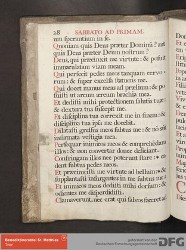 28 SABBATO AD PRIMAM.
non sperantium in se.
Quoniam quis Deus præter Dominũ? aut
quis Deus præter Deum nostrum?
Deus, qui præcinxit me virtute: & posuit
immaculatam viam meam.
Qui perfecit pedes meos tanquam cervo-
rum: & super excelsa statuens me.
Qui docet manus meas ad prælium: & po-
suisti ut arcum æreum brachia mea.
Et dedisti mihi protectionem salutis tuæ:
& dextera tua suscepit me.
Et disciplina tua correxit me in finem: &
disciplina tua ipsa me docebit.
Dilatasti gressus meos subtus me: & nõ sũt
infirmata vestigia mea.
Persequar inimicos meos & comprehendam
illos: & non convertar donec deficiant.
Confringam illos nec poterunt stare:
cadent subtus pedes meos.
Et præcinxisti me virtute ad bellum: &
supplantasti insurgentes in me subtus me.
Et inimicos meos dedisti mihi dorsum: &
odientes me disperdidisti.
Clamaverunt, nec erat qui salvos faceret ad
Benediktinerabtei St. Matthias
Trier
gefördert von der
Deutschen Forschungsgemeinschaft
DFG